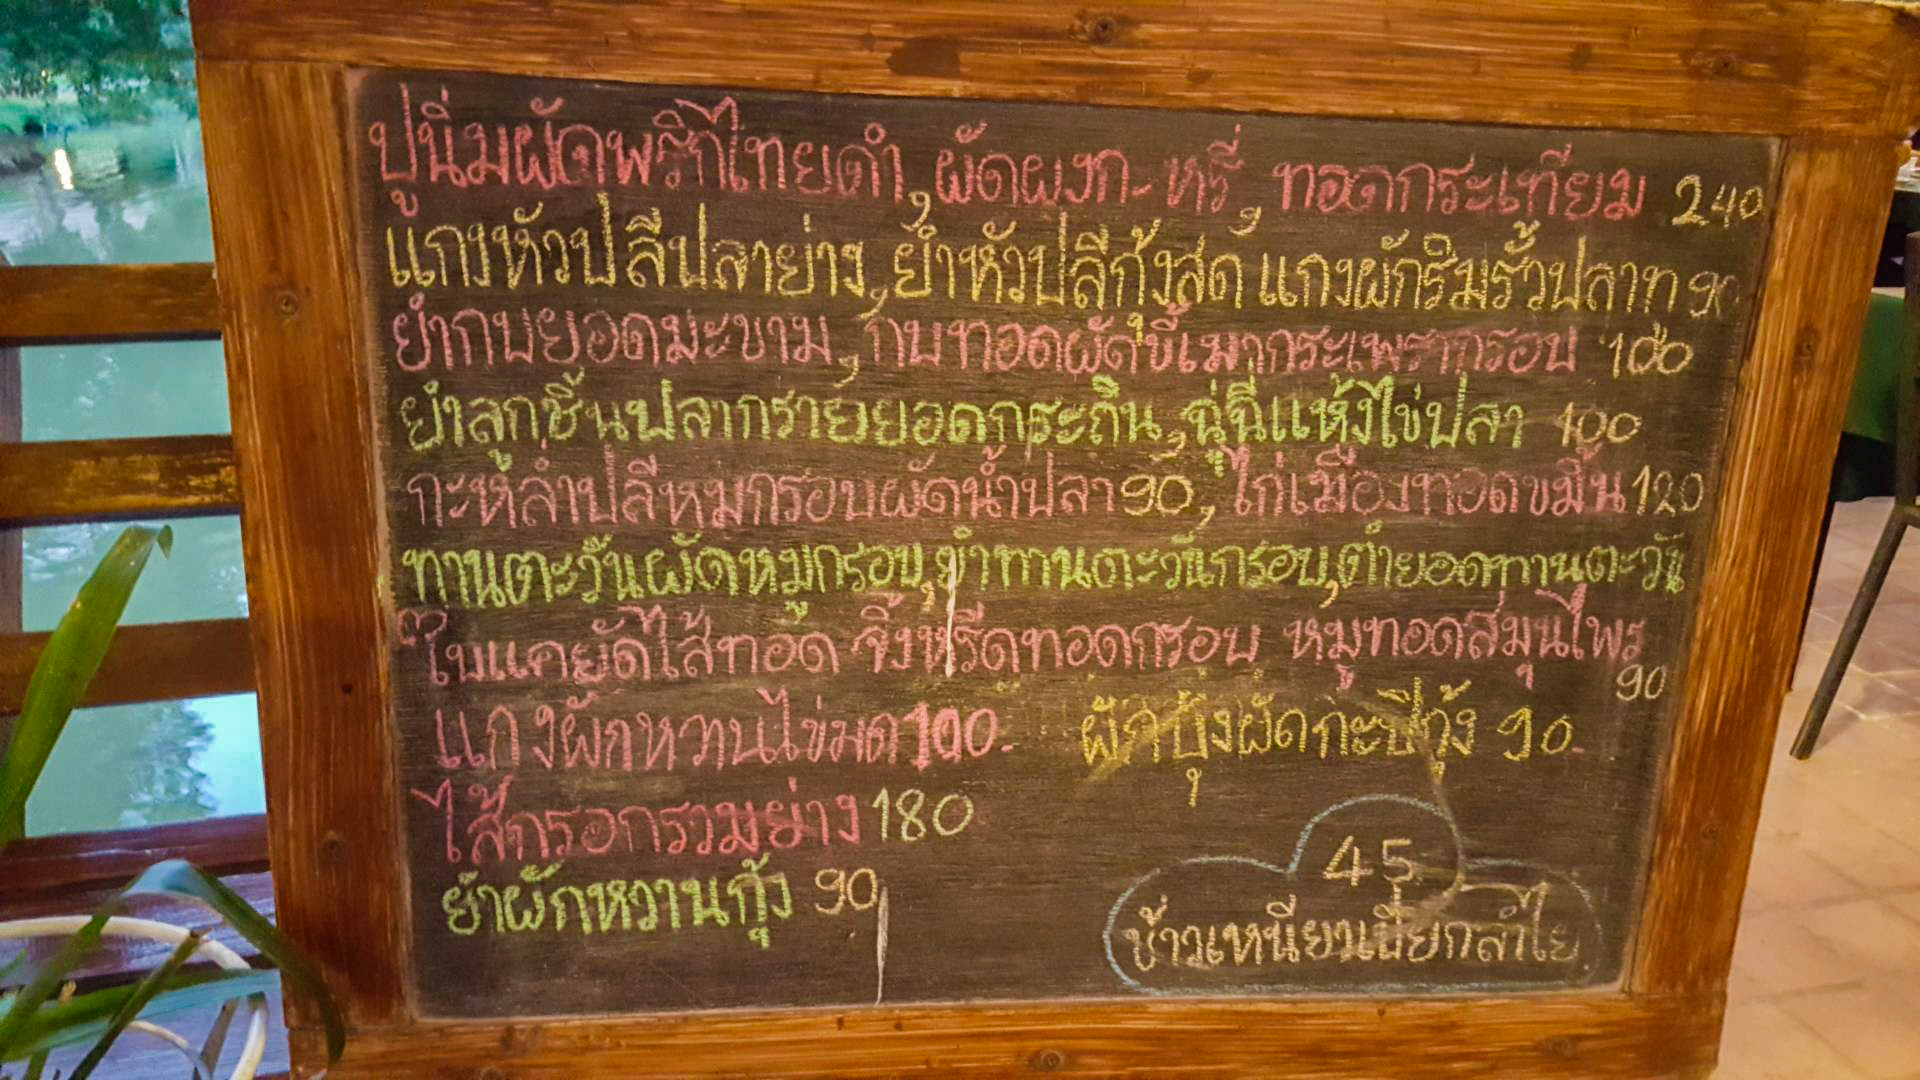 ปูนิ่มผัดพริกไทยดำ, ผัดผงกะหรี่, ทอดกระเทียม 240
แกงหัวปลีปลาย่าง, ยำหัวปลีกุ้งสด แกงผักริมรั้วปลาทู 90
ยำกบยอดมะขาม, กบทอดผัดขี้เมากระเพรากรอบ 100
ยำลูกชิ้นปลากรายยอดกระถิน, ฉู่ฉี่แห้งไข่ปลา 100
กะหล่ำปลีหมูกรอบผัดน้ำปลา 90, ไก่เมืองทอดขมิ้น 120
ทานตะวันผัดหมูกรอบ, ยำทานตะวันกรอบ, ตำยอดทานตะวัน
ใบแคยัดไส้ทอด จิ้งหรีดทอดกรอบ หมูทอดสมุนไพร
90
แกงผักหวานไข่มด 100.- ผักบุ้งผัดกะปิกุ้ง 90.-
ไส้กรอกรวมย่าง 180
ยำผักหวานกุ้ง 90
45
ข้าวเหนียวเปียกลำไย